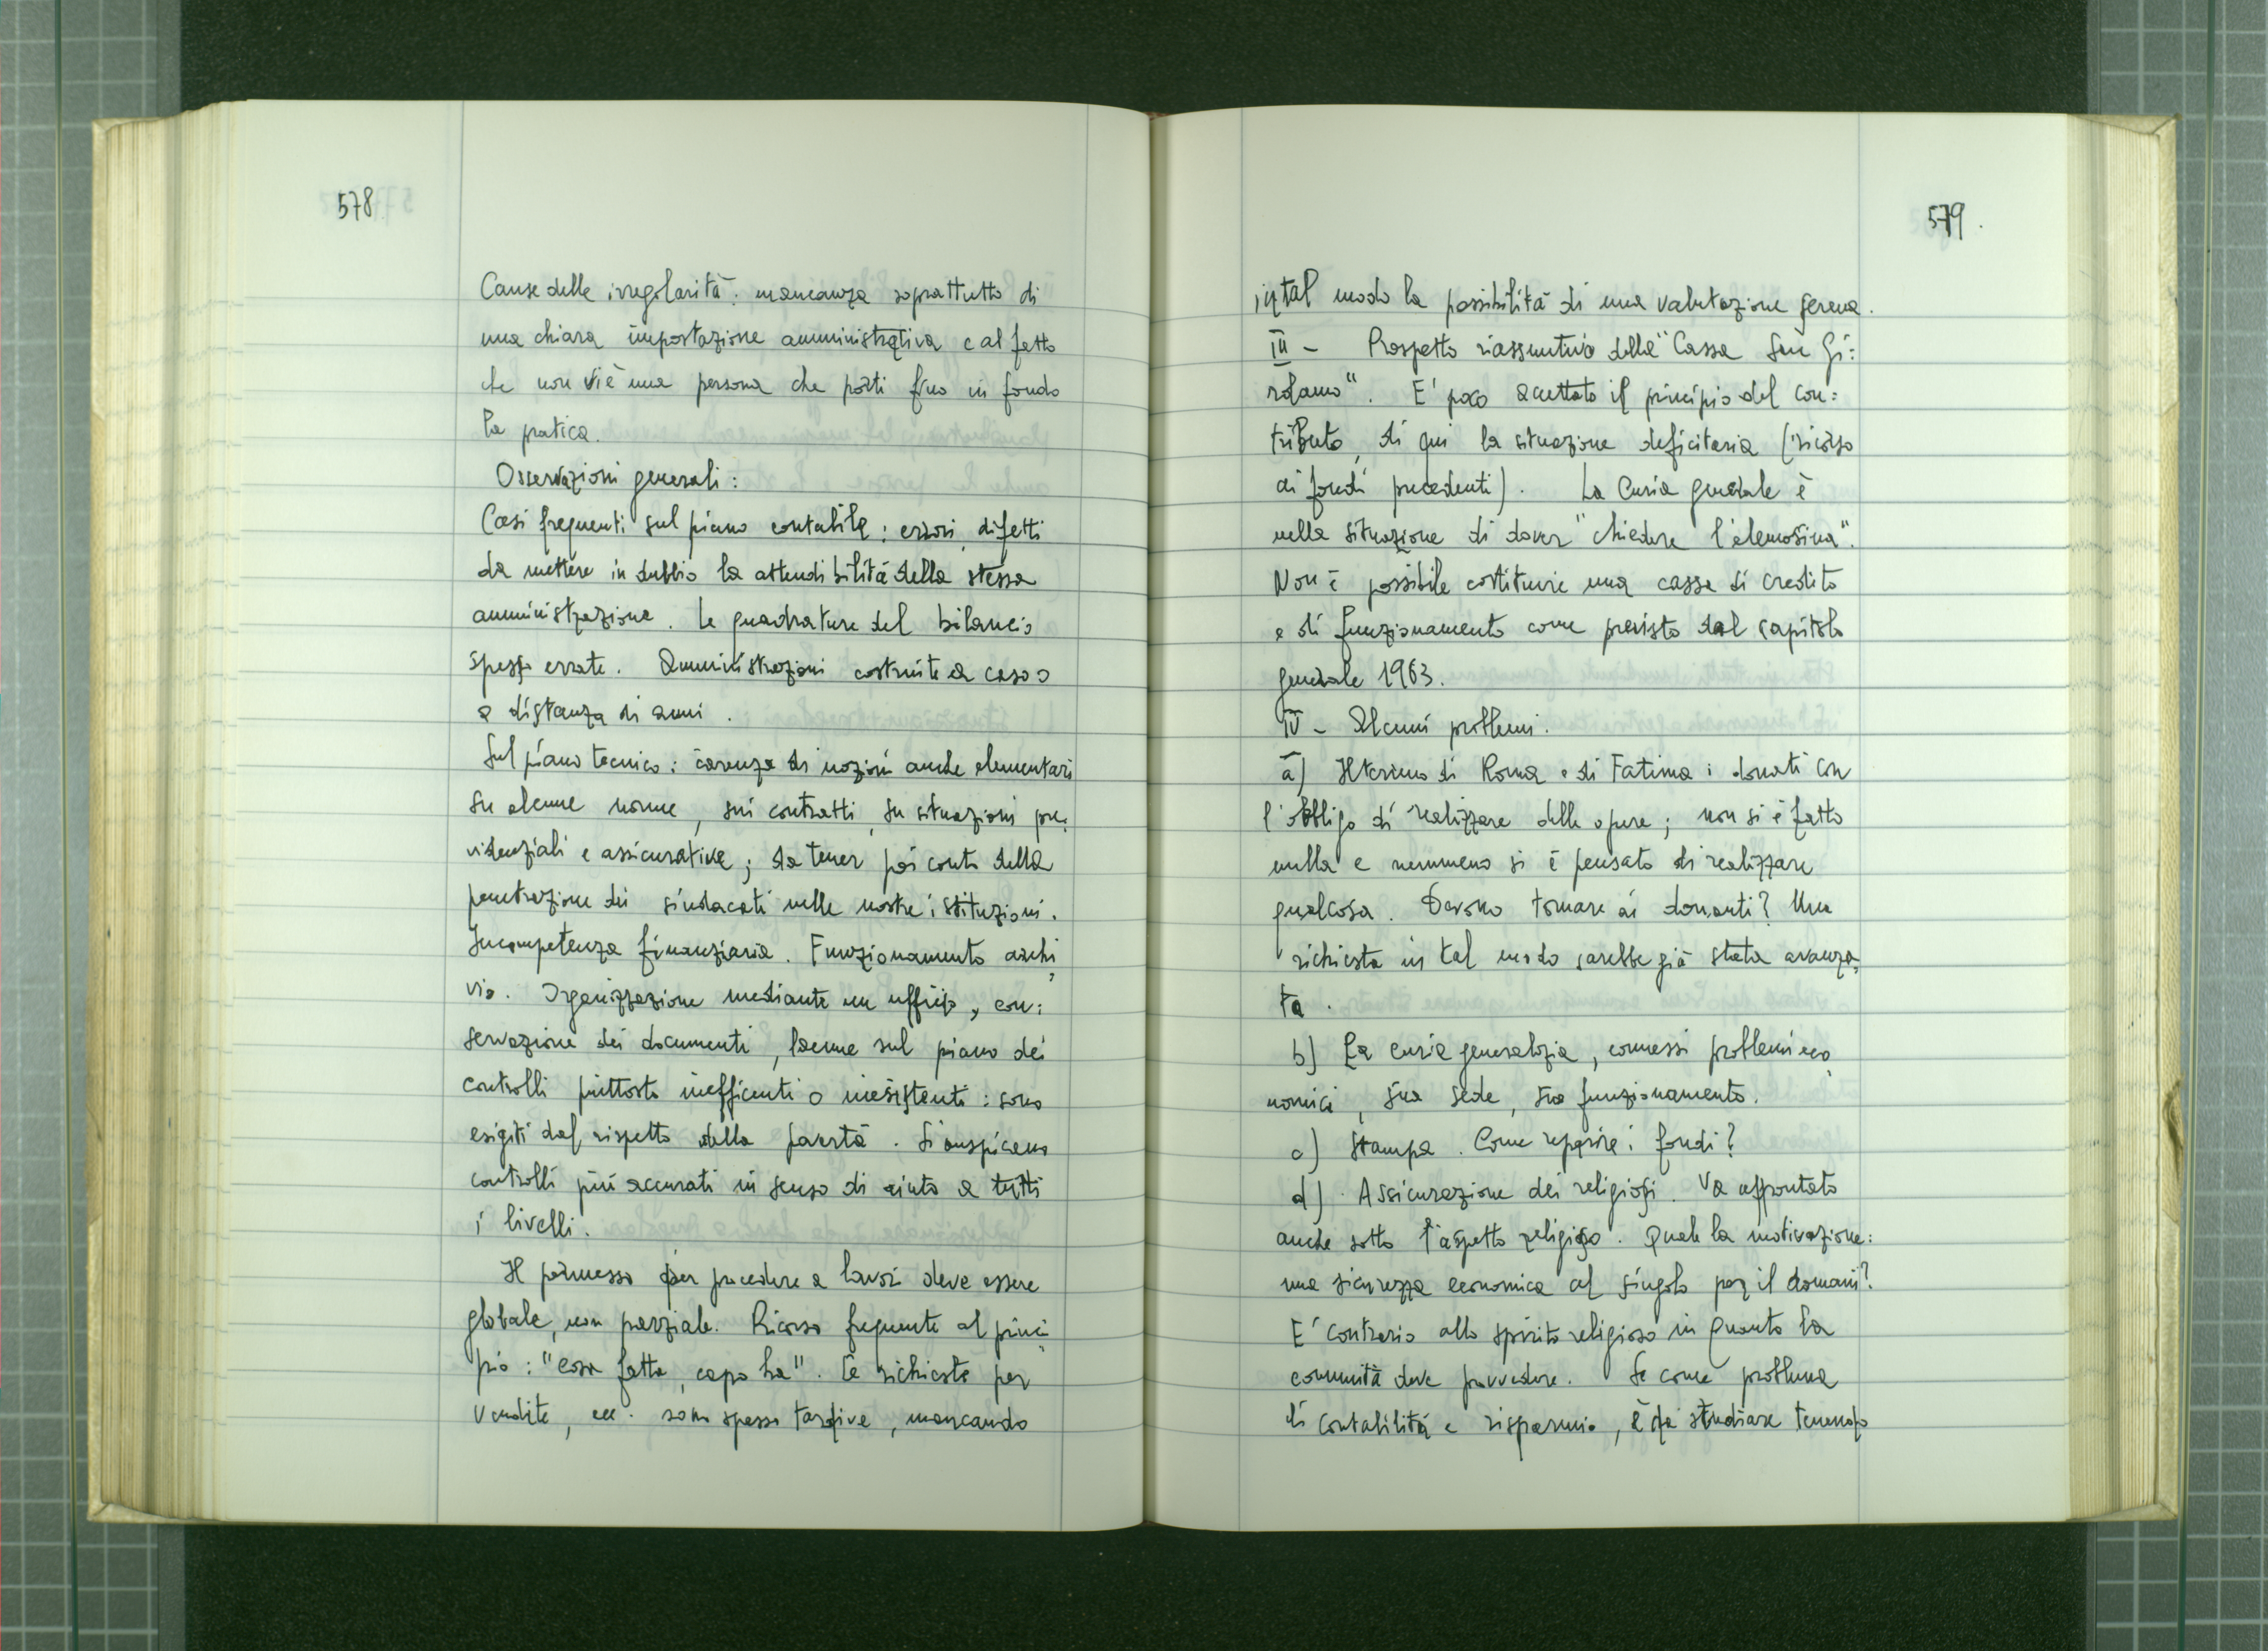 578
Cause delle irregolarità: mancanza soprattutto di
una chiara impostazione amministrativa e al fatto
che non vi è una persona che porti fino in fondo
la pratica.
Osservazioni generali:
Casi frequenti sul piano contabile: errori, difetti
da mettere in dubbio la attendibilità della stessa
amministrazione. Le quadrature del bilancio
spesso errate. Amministrazioni costruite a caso o
a distanza di anni.
Sul piano tecnico: carenza di nozioni anche elementari
su alcune norme, sui contratti, su situazioni pre=
videnziali e assicurative; da tener poi conto della
penetrazione dei sindacati nelle nostre istituzioni.
Incompetenza finanziaria. Funzionamento archi=
vio. Organizzazione mediante un ufficio, con:
servazione dei documenti, lacune sul piano dei
controlli piuttosto inefficienti o inesistenti: sono
esigiti dal rispetto della povertà. Si auspicano
controlli più accurati in senso di aiuto a tutti
i livelli.
Il permesso per procedere a lavori deve essere
globale, non parziale. Ricorso frequente al princi=
pio: "cosa fatta, capo ha". Le richieste per
vendite, ecc. sono spesso tardive, mancando
579.
in tal modo la possibilità di una valutazione serena.
III - Prospetto riassuntivo della "Cassa San Gi:
rolamo". E' poco accettato il principio del con:
tributo, di qui la situazione deficitaria (ricorso
ai fondi precedenti). La Curia generale è
nella situazione di dover "chiedere l'elemosina".
Non è possibile costituire una cassa di credito
e di funzionamento come previsto dal capitolo
generale 1963.
IV - Alcuni problemi.
a) Il terreno di Roma e di Fatima: donati con
l'obbligo di realizzare delle opere; non si è fatto
nulla e nemmeno si è pensato di realizzare
qualcosa. Devono tornare ai donanti? Una
richiesta in tal modo sarebbe già stata avanza=
ta.
b) La curia generalizia, connessi problemi eco=
nomici, sua sede, suo funzionamento.
c) Stampa. Come reperire i fondi?
d) Assicurazione dei religiosi. Va affrontato
anche sotto l'aspetto religioso. Quale la motivazione:
una sicurezza economica al singolo per il domani?
E' contrario allo spirito religioso in quanto la
comunità deve provvedere. Se come problema
di contabilità e risparmio, è da studiare tenendo